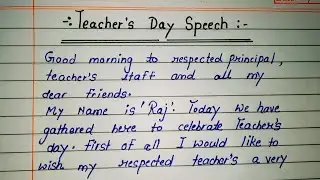 -:- Teacher's Day Speech :-
Good morning to respected principal,
teacher's staff and all my
dear friends.
My Name is 'Raj'. Today we have
gathered here to celebrate Teacher's
day. First of all I would like to
wish my respected teacher's a very